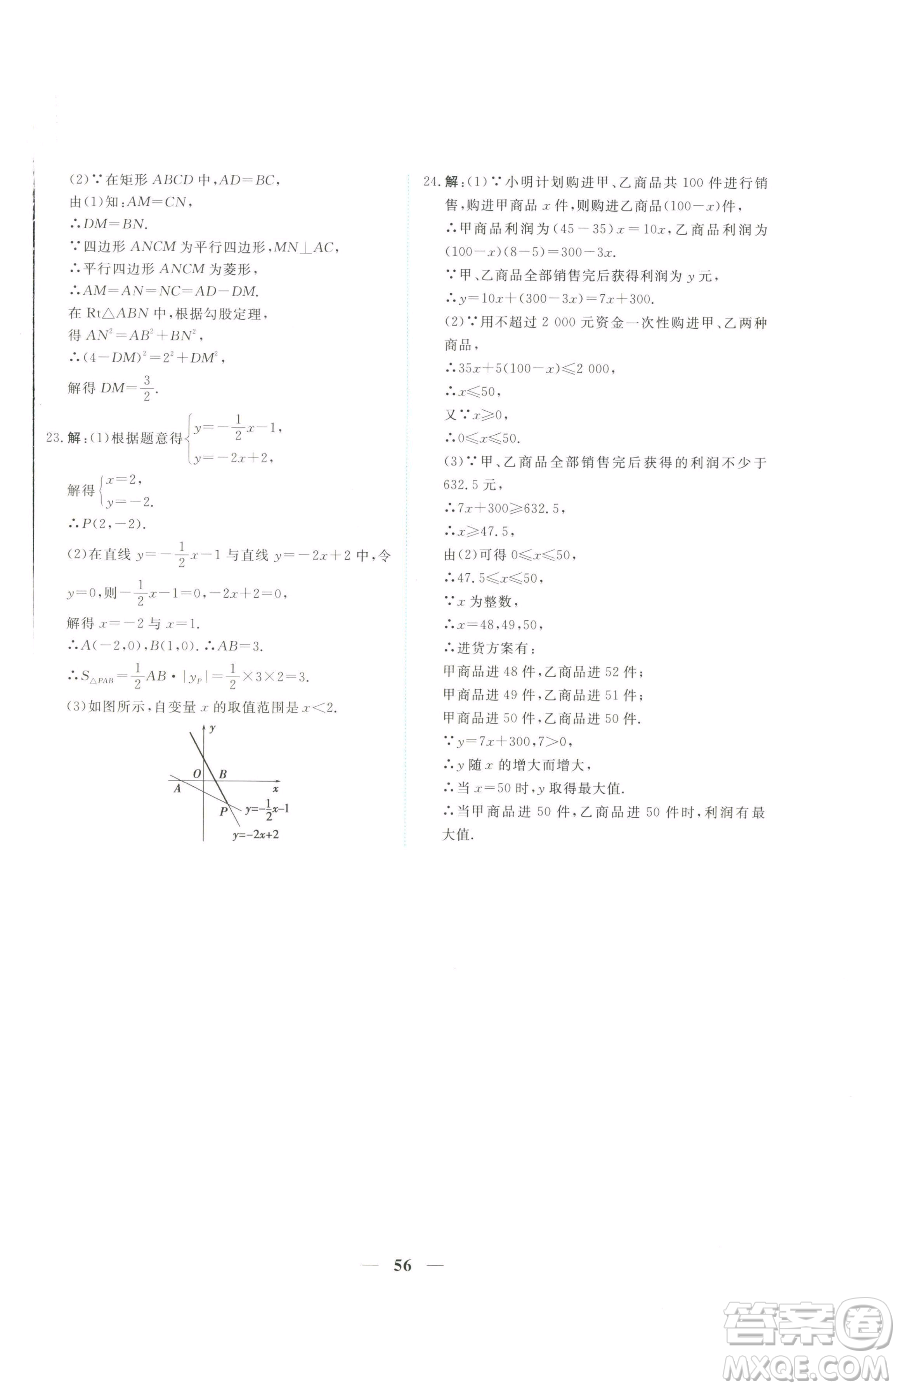 (2)∵在矩形 ABCD 中,AD=BC,
由(1)知:AM=CN,
∴DM=BN.
∵四边形 ANCM 为平行四边形,MN⊥AC,
∴平行四边形 ANCM 为菱形,
∴AM=AN=NC=AD-DM.
在 Rt△ABN 中,根据勾股定理,
得 AN²=AB²+BN²,
∴(4-DM)²=2²+DM²,
解得 DM=3/2.
23.解:(1)根据题意得{y=-1/2x-1,
y=-2x+2,
解得{x=2,
y=-2.
∴P(2,-2).
(2)在直线 y=-1/2x-1 与直线 y=-2x+2 中,令
y=0,则-1/2x-1=0,-2x+2=0,
解得 x=-2 与 x=1.
∴A(-2,0),B(1,0).∴AB=3.
∴S△PAB=1/2AB·|yP|=1/2×3×2=3.
(3)如图所示,自变量 x 的取值范围是 x<2.
y
O B
A x
P y=-1/2x-1
y=-2x+2
24.解:(1)∵小明计划购进甲、乙商品共 100 件进行销
售,购进甲商品 x 件,则购进乙商品(100-x)件,
∴甲商品利润为(45-35)x=10x,乙商品利润为
(100-x)(8-5)=300-3x.
∵甲、乙商品全部销售完后获得利润为 y 元,
∴y=10x+(300-3x)=7x+300.
(2)∵用不超过 2 000 元资金一次性购进甲、乙两种
商品,
∴35x+5(100-x)≤2 000,
∴x≤50,
又∵x≥0,
∴0≤x≤50.
(3)∵甲、乙商品全部销售完后获得的利润不少于
632.5 元,
∴7x+300≥632.5,
∴x≥47.5,
由(2)可得 0≤x≤50,
∴47.5≤x≤50,
∵x 为整数,
∴x=48,49,50,
∴进货方案有:
甲商品进 48 件,乙商品进 52 件;
甲商品进 49 件,乙商品进 51 件;
甲商品进 50 件,乙商品进 50 件.
∵y=7x+300,7>0,
∴y 随 x 的增大而增大,
∴当 x=50 时,y 取得最大值.
∴当甲商品进 50 件,乙商品进 50 件时,利润有最
大值.
— 56 —
答案圈
MXQE.COM